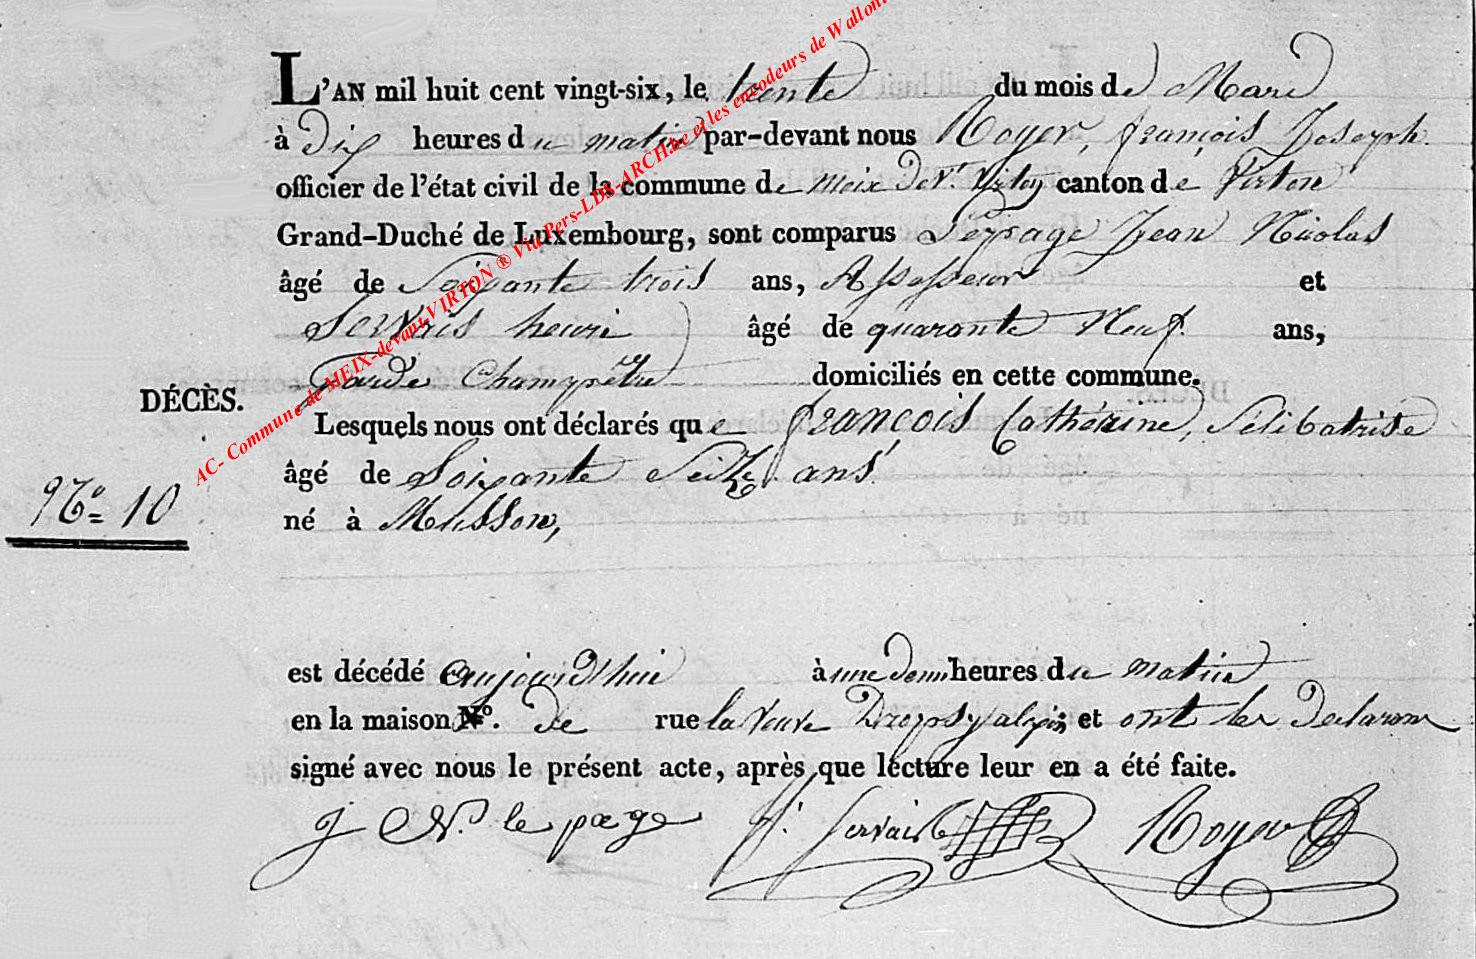 L'AN mil huit cent vingt-six, le trente du mois de Mars
à Dix heures du matin par-devant nous Royer, françois Joseph
officier de l'état civil de la commune de meix devt. Virton canton de Virton
Grand-Duché de Luxembourg, sont comparus Lepage Jean Nicolas
âgé de Soixante trois ans, Assesseur et
Servais henri âgé de quarante Neuf ans,
garde Champêtre domiciliés en cette commune.
DÉCÈS.
Lesquels nous ont déclarés que françois Cathérinne, Sélibatrise
âgé de Soixante Seize ans
No. 10
né à Musson,
est décédé aujourd'hui à une demi heures du matin
en la maison No. de rue la veuve et ont les
signé avec nous le présent acte, après que lecture leur en a été faite.
J N. le page H. Servais Royer
AC- Commune de MEIX-devant-VIRTON ® Via Pers-LDB-ARCH.be et les encodeurs de Wallonie